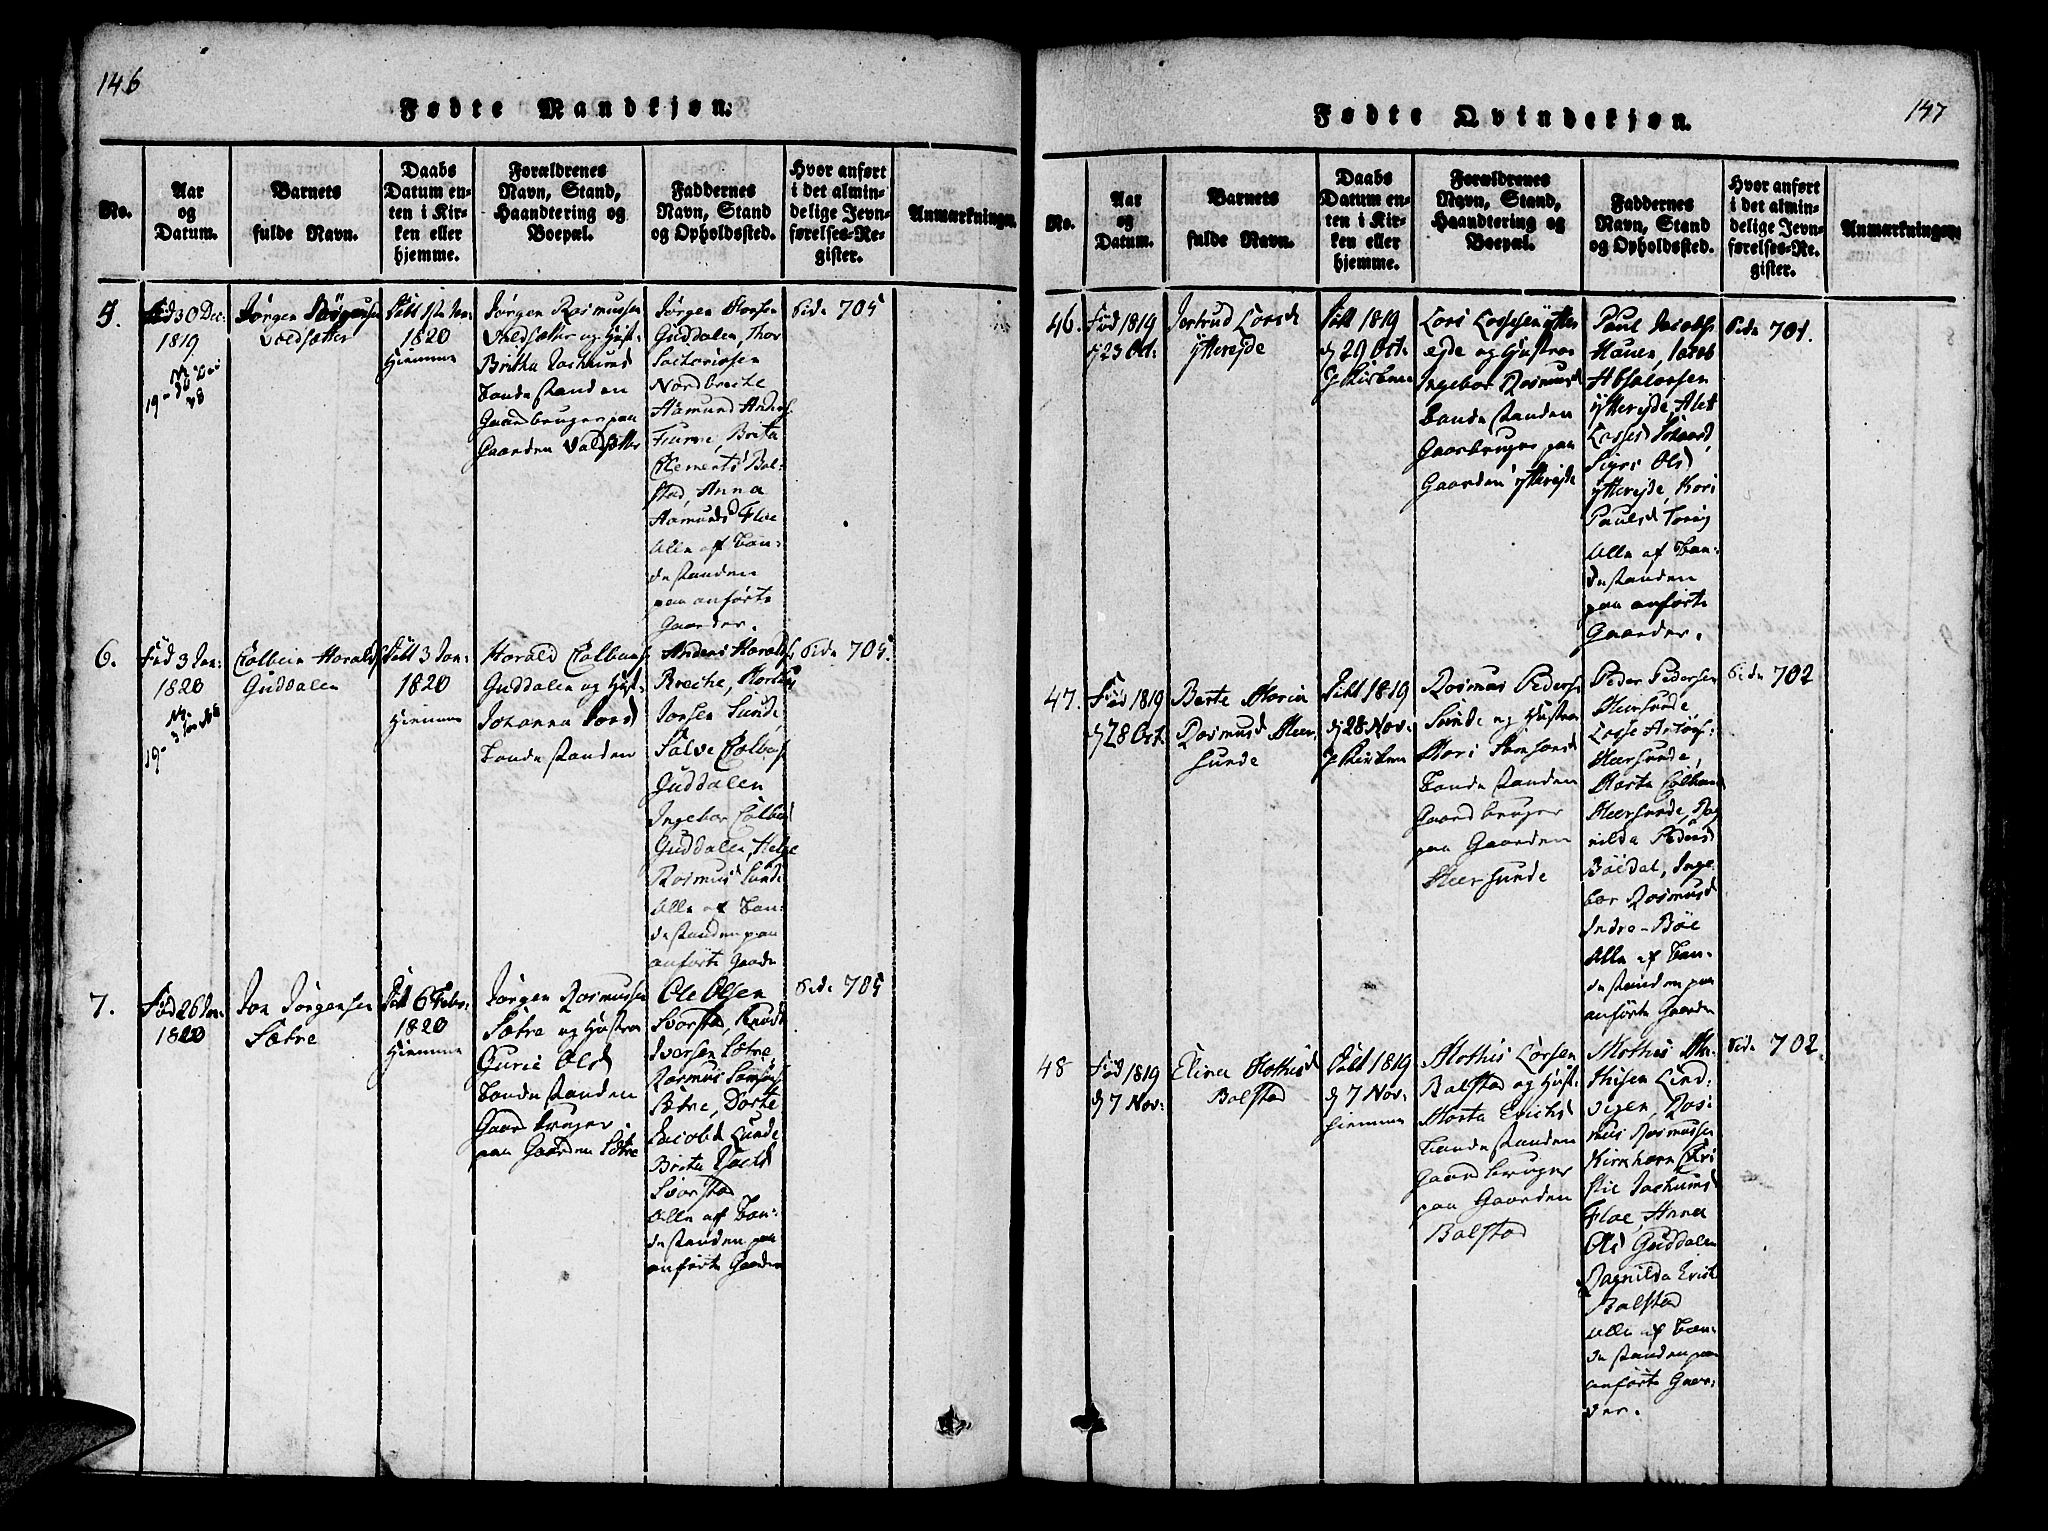 146
Fødte Mandkjøn.
No.
Aar
og
Datum.
Barnets
fulde Navn.
Daabs
Datum en-
ten i Kir-
ken eller
hjemme.
Forældrenes
Navn, Stand,
Haandtering og
Boepæl.
Faddernes
Navn, Stand
og Opholdssted.
Hvor anført
i det almin-
delige Jevn-
førelses-Re-
gister.
Anmærkninger.
5.
Fød 30 Dec:
1819
Jørgen Jörgensen
Valdsætter
Döbt
1820
Hiemme
Jørgen Rasmussen
Valdsætter og Hust:
Britha Jachums
Bondestanden
Gaardbruger paa
Gaarden Valdsætter
Jørgen
Guddalen, Thor
Sachariasen
Nordbreche
Aamund Anders.
Furre, Brita
Clements Bal-
stad, Anna
Aamunds Floe
Alle af Bon-
destanden
paa anførte
Gaarder.
Side 705
6.
Fød 3 Jan:
1820
Colbein Haralds
Guddalen
Döbt 3 Jan:
1820
Hiemme
Harald Colbens
Guddalen og Hust:
Johanna Jons
Bondestanden
Anders Haralds.
Breche, Morten
Jonsen Sunde
Salve Colbens
Guddalen
Ingebor Colbens
Guddalen, Helge
Rasmusd Sunde
Alle af Bon-
destanden paa
anførte Gaarde
Side 705
7.
Fød 26 Jan:
1820
Jon Jørgensen
Sætre
Döbt 6 Febr:
1820
Hiemme
Jørgen Rasmussen
Sætre og Hustrue
Gurie Olsd
Bondestanden
Gaardbruger
paa Gaarden Sætre
Ole Olsen
Svarstad, Knud
Iversen Sætre
Rasmus Samsons
Sætre, Dorte
Jacobsd Sunde
Brita
Svarstad
Alle af Bon-
destanden paa
anførte Gaarder
Side 705
147
Fødte Qvindekjøn.
No.
Aar
og
Datum.
Barnets
fulde Navn.
Daabs
Datum en-
ten i Kir-
ken eller
hjemme.
Forældrenes
Navn, Stand,
Haandtering og
Boepæl.
Faddernes
Navn, Stand
og Opholdssted.
Hvor anført
i det almin-
delige Jevn-
førelses-Re-
gister.
Anmærkninger.
46.
Fød 1819
d 23 Oct:
Jertrud Larsd
Ytterejde
Döbt 1819
d 29 Oct:
J Kirken
Lars Lassen Ytter
ejde og Hustrue
Ingebor Rasmusd
Bondestanden
Gaarbruger paa
Gaarden Ytterejde
Paul Jacobs.
Hauen, Jacob
Absalonsen
Ytterejde, Alet
Lasses
Sigri Olsd
Ytterejde, Kari
Paulsd
Alle af Bon-
destanden
paa anførte
Gaarder.
Side 701.
47.
Fød 1819
d 28 Oct.
Berte Maria
Rasmusd Meer-
sunde
Döbt 1819
d 28 Nov:
J Kirken
Rasmus Peders.
Sunde og Hustrue
Mari Samsonsd
Bondestanden
Gaardbruger
paa Gaarden
Meersunde
Peder Pedersen
Meersunde
Lasse
Meersunde,
Marte Colbens
Meersunde, Rag
nilda Pedersd
Böedal, Inge-
bor Rasmusd
Indre-Böe
Alle af Bon-
destanden paa
anførte Gaarder
Side 702
48
Fød 1819
d 7 Nov:
Elina Mathisd
Balstad
Döbt 1819
d 7 Nov:
hiemme
Mathis Larsen
Balstad og Hust:
Marta Erichsd
Bondestanden
Gaardbruger
paa Gaarden
Balstad
Mathis Ma-
thisen Lind-
vigen, Ras-
mus Rasmussen
Kirkhorn
Jachumsd
Floe, Anna
Olsd Guddalen
Ragnilda Erichs
Balstad
Alle af Bon-
destanden paa
anførte Gaar-
der.
Side 702.